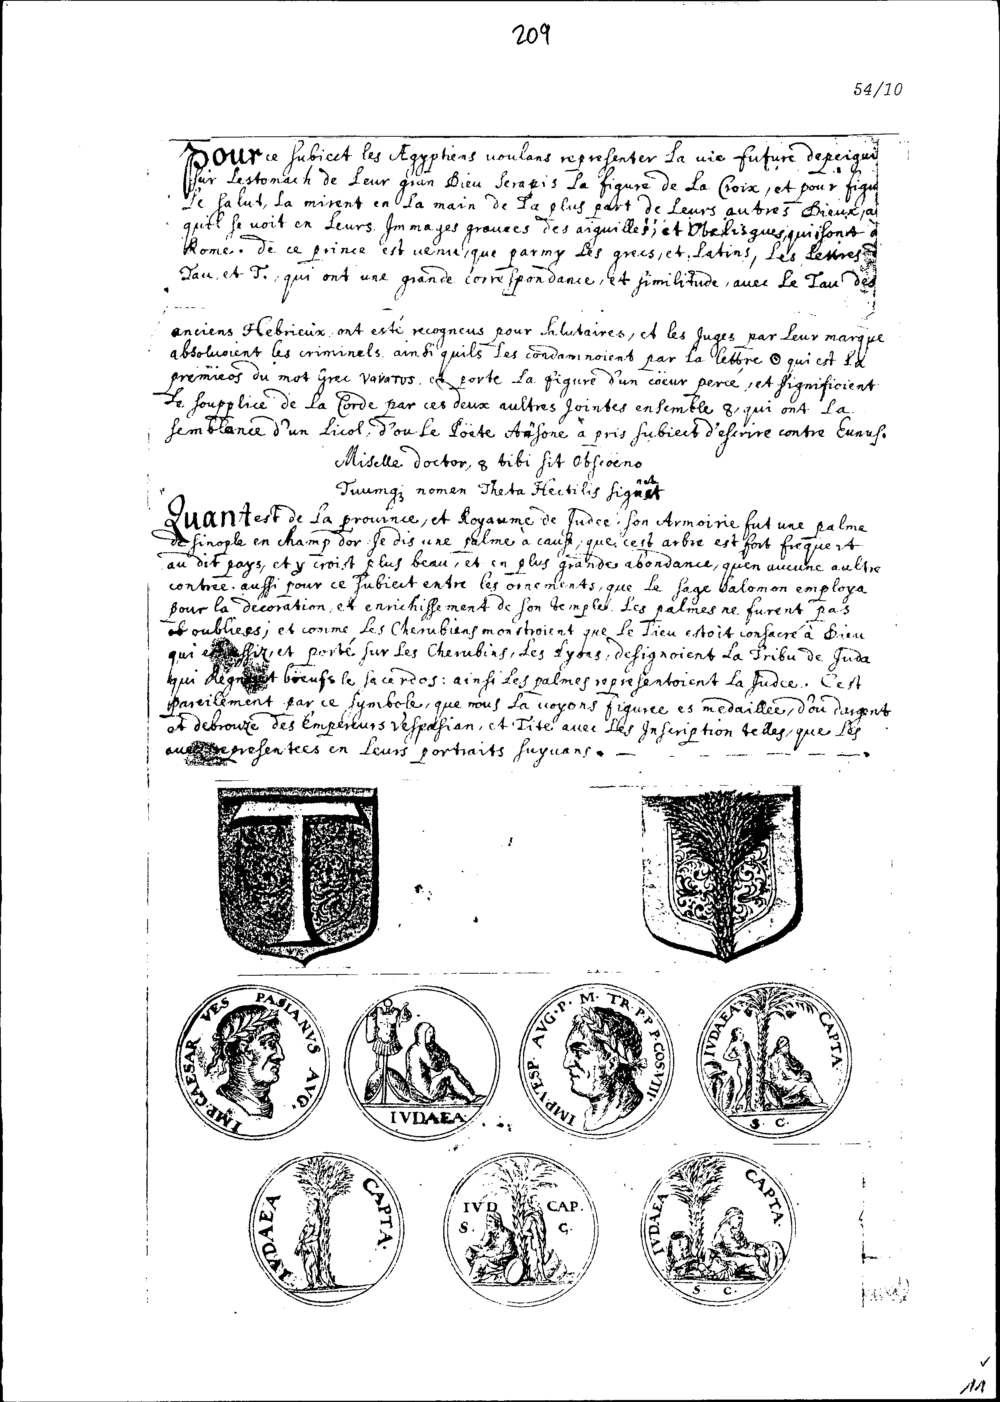 209
54/10
Pource subiect les Ægyptiens uoulans representer La uie future depeigni
sur Lestomach de Leur gran Dieu Serapis La figure de La Croix, et pour figu
Le salut, La mirent en La main de La plus part de Leurs autres Dieux, a
quil se uoit en Leurs Immages grauees des aiguilles, et Obelisques, qui sont a
Rome. De ce prince est uenu, que parmy Les grecs, et Latins, Les Lettres
Tau, et T., qui ont une grande correspondance, et similitude, auec Le Tau des
anciens Hebrieux, ont esté recogneus pour salutaires, et les Juges par Leur marque
absoluoient les criminels, ainsi quils Les condamnoient par La lettre Θ qui est La
premieos du mot Grec et porte La figure d'un coeur percé, et significient
Le soupplice de La Corde par ces deux aultres Jointes ensemble 8, qui ont La
semblance d'un Licol, d'ou Le Poëte Ausone à pris subiect d'escrire contre Eunus.
Miselle doctor, 8 tibi sit Obscoeno
Tuumq; nomen Theta Hectilis signet
Quant est de La prouince, et Royaume de Judee, son Armoirie fut une palme
de sinople en champ dor. Je dis une palme à cause, que cest arbre est fort frequent
au dit pays, et y croist plus beau, et en plus grandes abondance, quen aucune aultre
contrée. aussi pour ce subiect entre les ornements, que Le sage Salomon employa
pour la decoration, et enrichissement de son temple, Les palmes ne furent pas
oubliees, et comme Les Cherubiens monstroient que Le Dieu estoit consacré à Dieu
qui est assiz, et porté sur Les Cherubins, Les Lyons, designoient La Tribu de Juda
qui Regn boeufs le sacerdos: ainsi Les palmes representoient La Judee. C'est
pareilement par ce symbole, que nous La uoyons figuree es medailles, d'ou dargent
et debronze des Empereurs Vespasian, et Tite auec Les Inscription telles, que Les
representees en Leurs portraits suyuans.
T
IMP. CAESAR VESPASIANVS AVG.
IVDAEA
IMP. VESP. AVG. P. M. TR. P. P. P. COS. VIII
IVDAEA CAPTA
S. C.
IVDAEA CAPTA.
IVD CAP.
S. C.
IVDAEA CAPTA.
S. C.
11